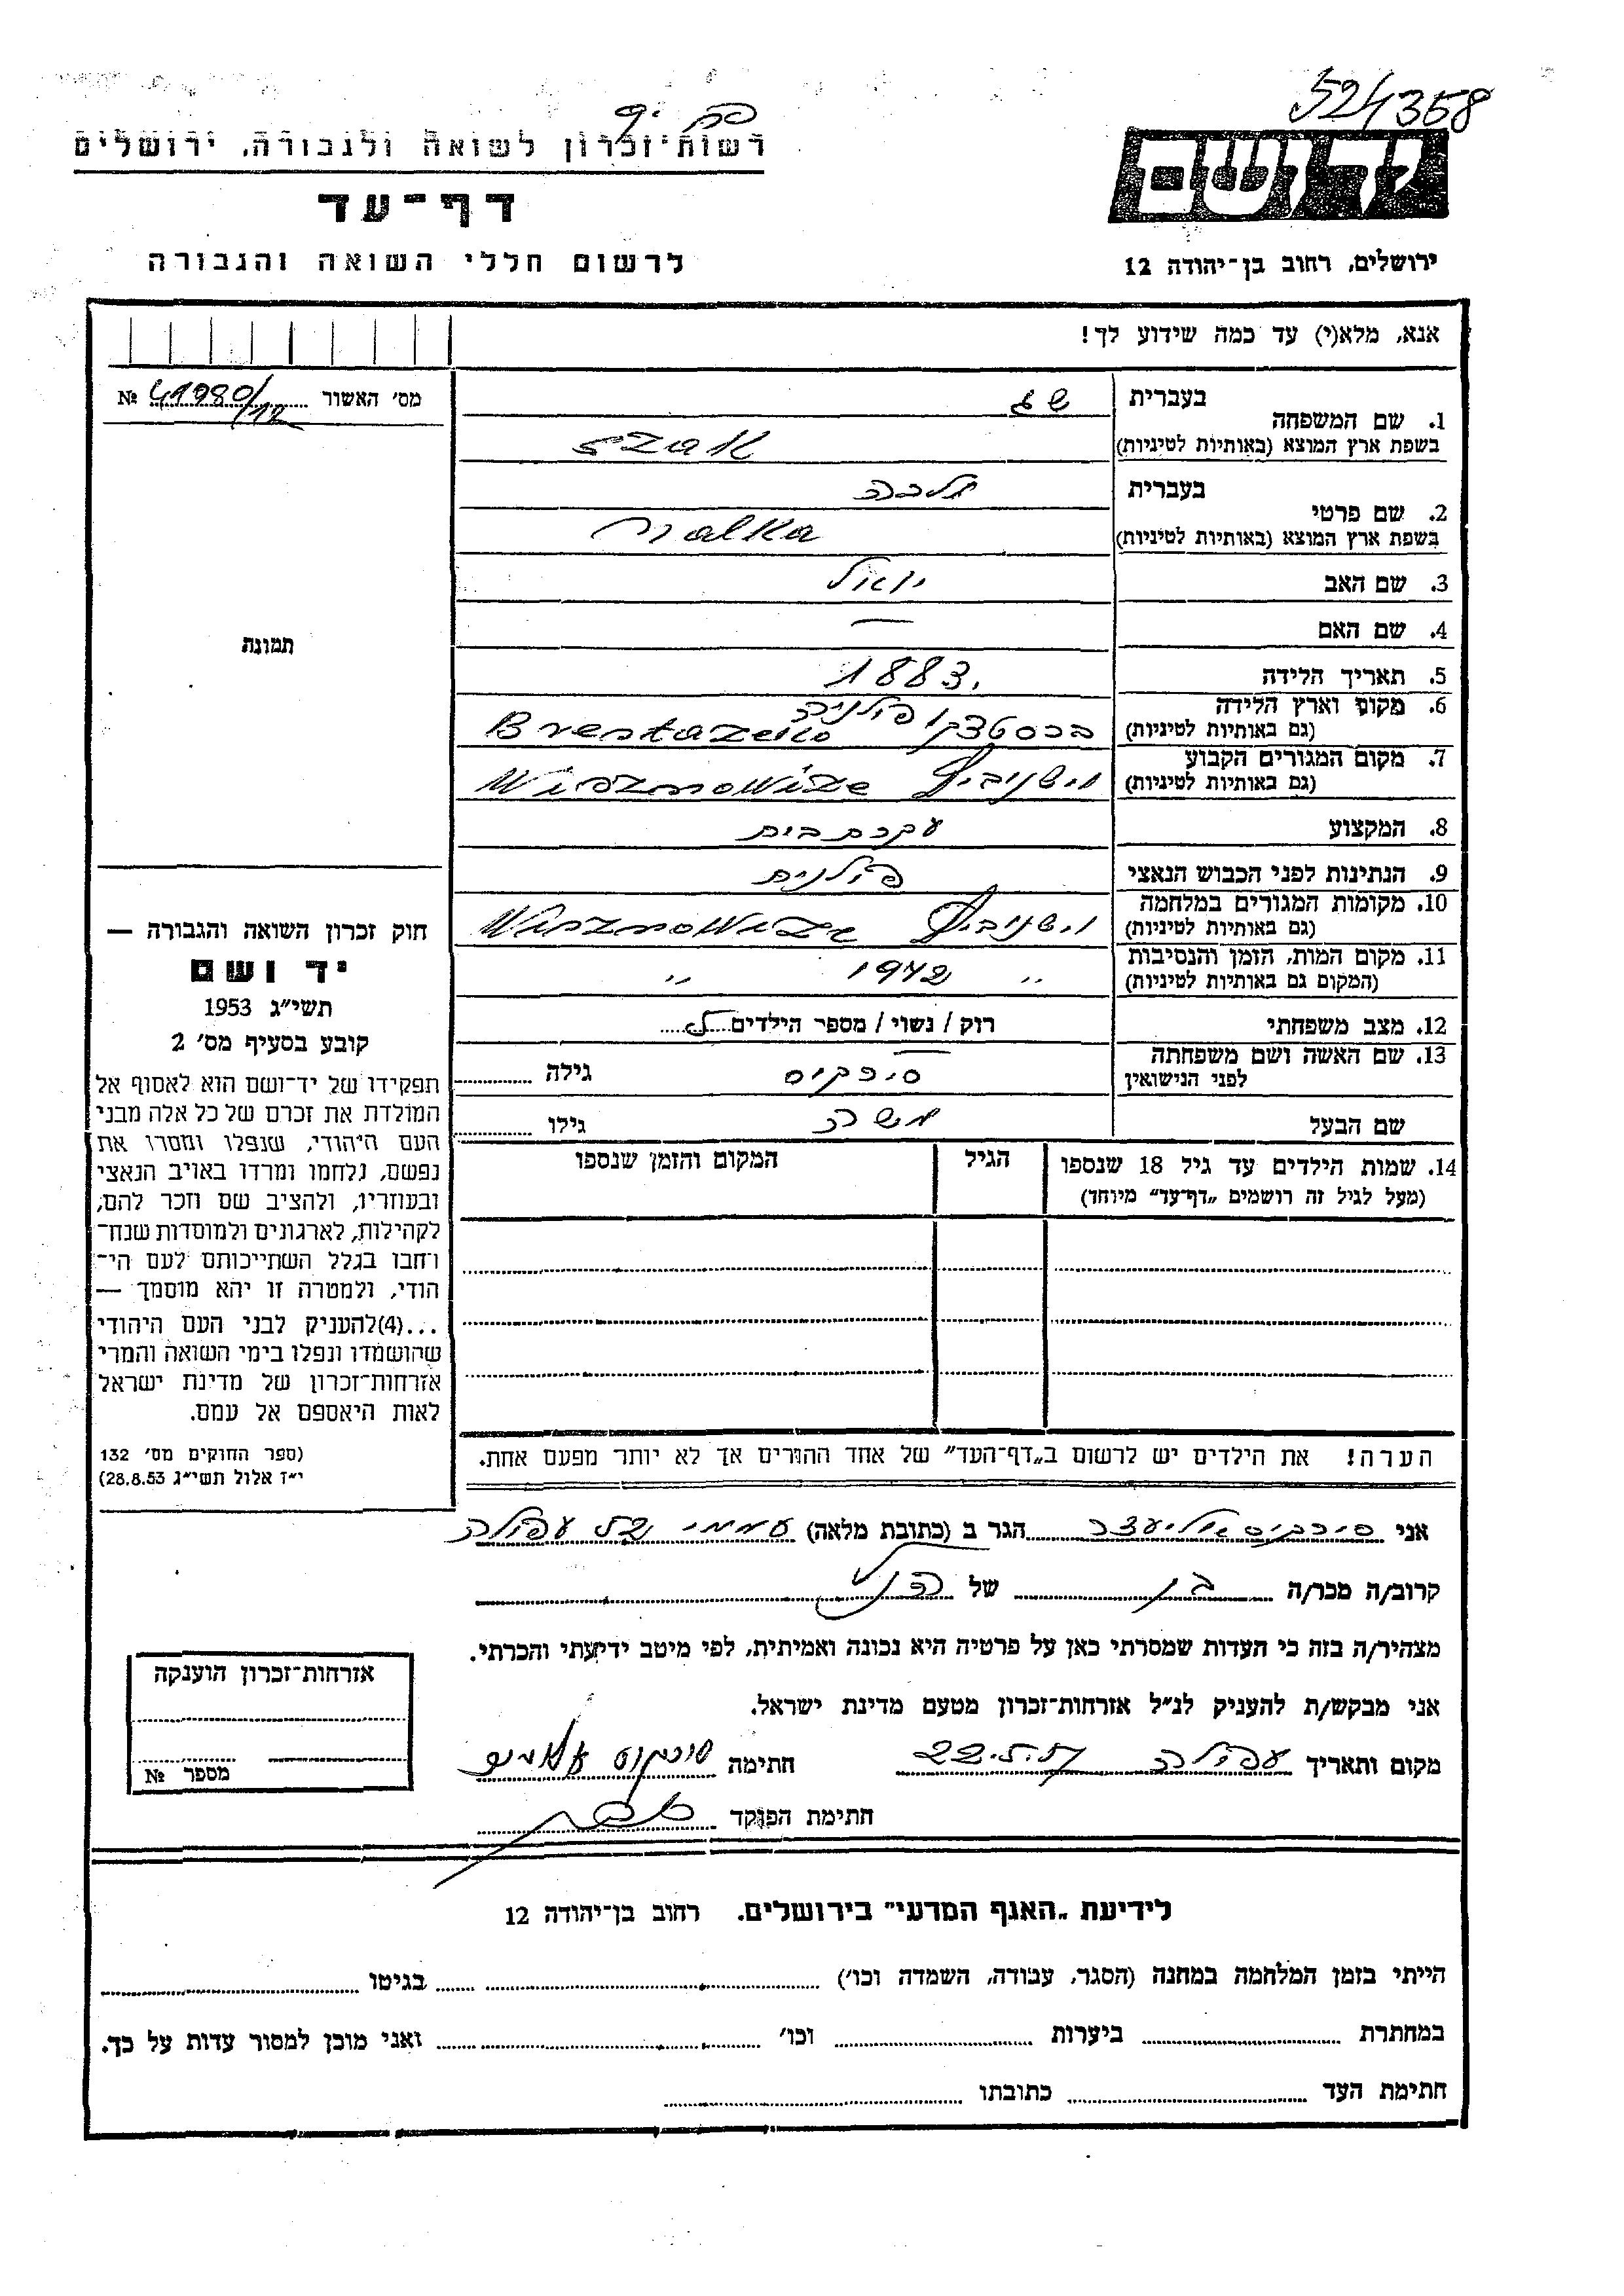 524358
רשות־זכרון לשואה ולגבורה, ירושלים
דף־עד
לרשום חללי השואה והגבורה
יד ושם
ירושלים, רחוב בן־יהודה 12
אנא, מלא(י) עד כמה שידוע לך!
מס׳ האשור № 41980/12
תמונה
1. שם המשפחה
בעברית
בשפת ארץ המוצא (באותיות לטיניות) szak
2. שם פרטי
בעברית מלכה
בשפת ארץ המוצא (באותיות לטיניות) malka
3. שם האב יואל
4. שם האם —
5. תאריך הלידה 1883
6. מקום וארץ הלידה
(גם באותיות לטיניות) פולניה
7. מקום המגורים הקבוע
(גם באותיות לטיניות) וישניביץ Wisznowize
8. המקצוע עקרת בית
9. הנתינות לפני הכבוש הנאצי פולנית
10. מקומות המגורים במלחמה
(גם באותיות לטיניות) וישניביץ Wisznowize
11. מקום המות, הזמן והנסיבות
(המקום גם באותיות לטיניות) ״ 1942 ״
12. מצב משפחתי רוק / נשוי / מספר הילדים
13. שם האשה ושם משפחתה
לפני הנישואין סירקיס גילה
שם הבעל משה גילו
14. שמות הילדים עד גיל 18 שנספו
(מעל לגיל זה רושמים „דף־עד״ מיוחד)
הגיל
המקום והזמן שנספו
הערה! את הילדים יש לרשום ב„דף־העד״ של אחד ההורים אך לא יותר מפעם אחת.
חוק זכרון השואה והגבורה —
יד ושם
תשי״ג 1953
קובע בסעיף מס׳ 2
תפקידו של יד־ושם הוא לאסוף אל
המולדת את זכרם של כל אלה מבני
העם היהודי, שנפלו ומסרו את
נפשם, נלחמו ומרדו באויב הנאצי
ובעוזריו, ולהציב שם וזכר להם,
לקהילות, לארגונים ולמוסדות שנח־
רחבו בגלל השתייכותם לעם הי־
הודי, ולמטרה זו יהא מוסמך —
...(4)להעניק לבני העם היהודי
שהושמדו ונפלו בימי השואה והמרי
אזרחות־זכרון של מדינת ישראל
לאות היאספם אל עמם.
(ספר החוקים מס׳ 132
י״ז אלול תשי״ג 28.8.53)
אני סירקיס אליעזר הגר ב (כתובת מלאה) עפולה
קרוב/ה מכר/ה בן של הנ״ל
מצהיר/ה בזה כי העדות שמסרתי כאן על פרטיה היא נכונה ואמיתית, לפי מיטב ידיעתי והכרתי.
אני מבקש/ת להעניק לנ״ל אזרחות־זכרון מטעם מדינת ישראל.
מקום ותאריך עפולה חתימה
חתימת הפוקד
אזרחות־זכרון הוענקה
מספר №
לידיעת „האגף המדעי״ בירושלים. רחוב בן־יהודה 12
הייתי בזמן המלחמה במחנה (הסגר, עבודה, השמדה וכו׳) בגיטו
במחתרת ביערות וכו׳ ואני מוכן למסור עדות על כך.
חתימת העד כתובתו